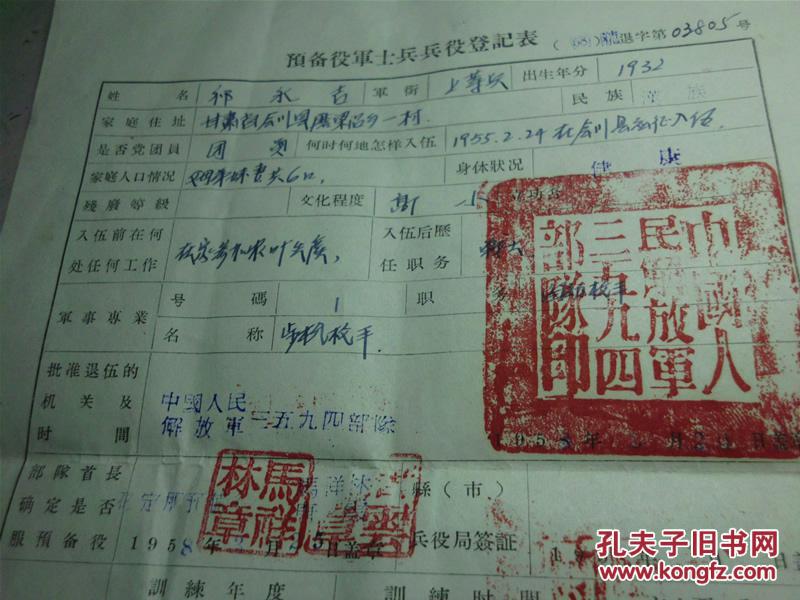 預备役軍士兵兵役登記表
退字第03805号
姓名 祁永吉 軍銜 上等兵 出生年分 1932
民族 漢族
家庭住址 甘肃省会川县
是否党团員 团員 何时何地怎样入伍 1955.2.24在会川县应征入伍
家庭人口情况 共6口, 身休狀况 健康
殘廢等級 文化程度 初小
入伍前在何处任何工作 在家参加农 入伍后歷任职务 战士
軍事專業 号碼 1 职务 步机枪手
名称 步机枪手.
批准退伍的机关及时間 中國人民解放軍三五九四部隊
中國人民解放軍三五九四部隊印
部隊首長確定是否服預备役 馬祥林
馬祥林章
1958年 月25日盖章
縣(市)兵役局簽証
訓練年度 訓練时間
孔夫子旧书网
www.kongfz.com